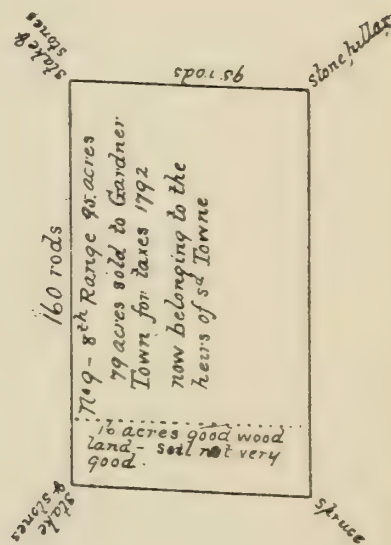 stake &
stones
95. rods
stone pillar
160 rods
No 9 - 8th Range 95. acres
79 acres sold to Gardner
Town for taxes 1792
now belonging to the
heirs of sd Towne
16 acres good wood
land - soil not very
good.
stake
& stones
spruse